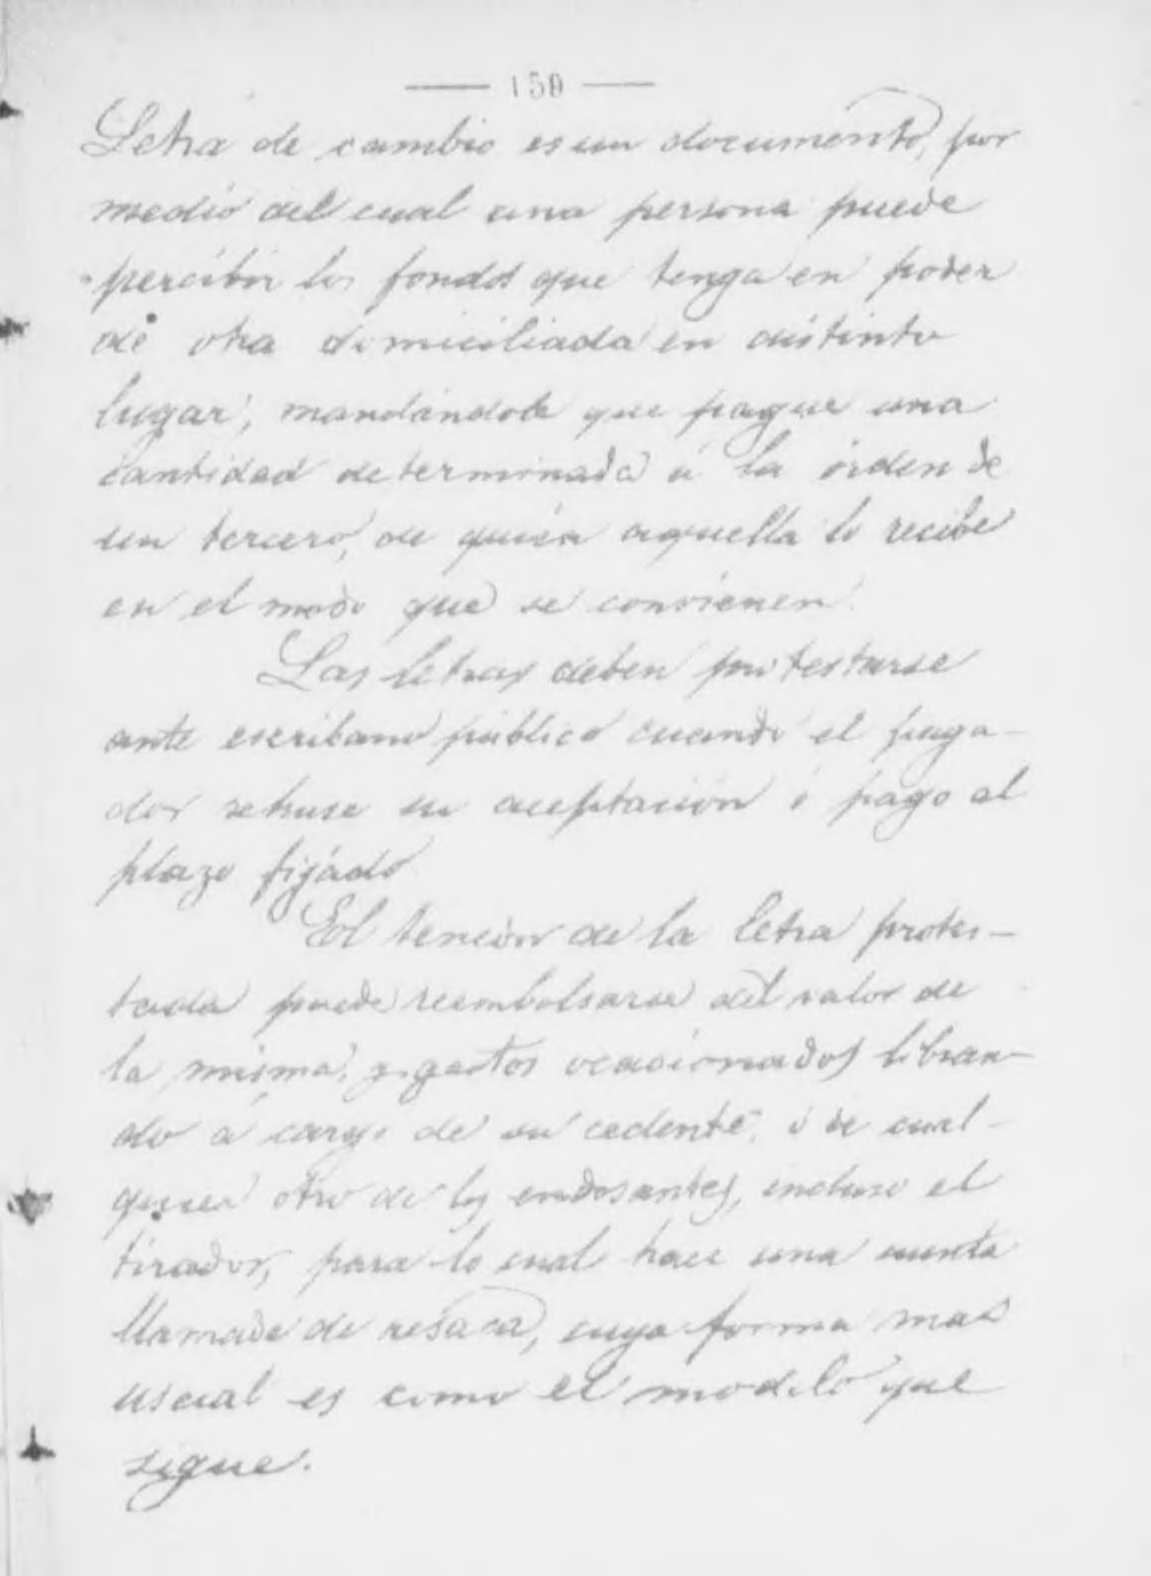 — 159 —
Letra de cambio es un documento, por
medio del cual una persona puede
percibir los fondos que tenga en poder
de otra domiciliada en distinto
lugar, mandándole que pague una
cantidad determinada á la órden de
un tercero, de quién aquella lo recibe
en el modo que se convienen.
Las letras deben protestarse
ante escribano público cuando el paga-
dor rehuse su aceptación ó pago al
plazo fijado
El tenedor de la letra protes-
tada puede reembolsarse del valor de
la misma, y gastos ocasionados libran-
do á cargo de su cedente, ó de cual-
quier otro de los endosantes, incluso el
tirador, para lo cual hace una cuenta
llamada de resaca, cuya forma mas
usual es como el modelo que
sigue.